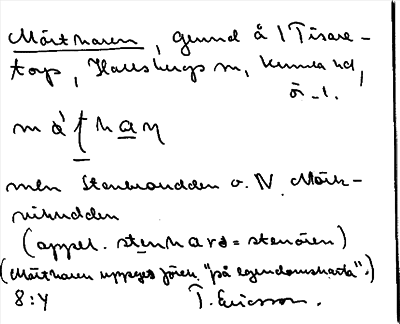 Mörtharen, grund å 1 Tisare-
torp, Hallsbergs sn, Kumla hd,
ör. l.
men Stenbrandden o. N. Mört-
viksudden
(appel. stenhard = stenören)
(Mörtharen uppges fören. "på egendomskarta".)
8:4 T. Ericsson.